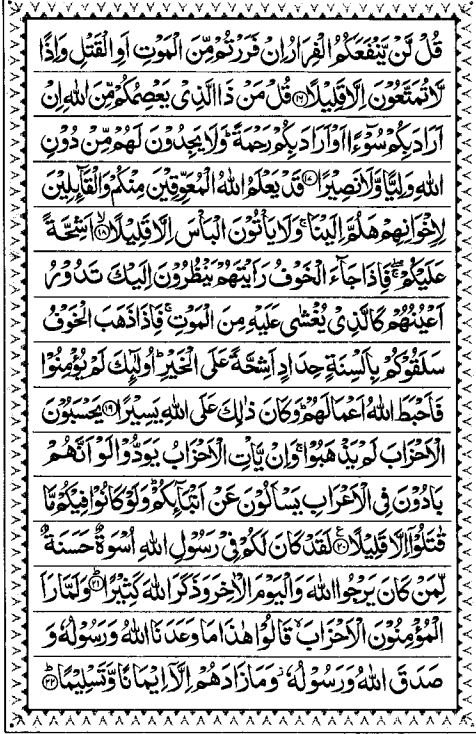 قُلْ لَّنْ يَّنْفَعَكُمُ الْفِرَارُ اِنْ فَرَرْتُمْ مِّنَ الْمَوْتِ اَوِ الْقَتْلِ وَاِذًا
لَّا تُمَتَّعُوْنَ اِلَّا قَلِيْلًا ۝۱۶ قُلْ مَنْ ذَا الَّذِیْ یَعْصِمُكُمْ مِّنَ اللّٰهِ اِنْ
اَرَادَ بِكُمْ سُوْٓءًا اَوْ اَرَادَ بِكُمْ رَحْمَةً ؕ وَلَا یَجِدُوْنَ لَهُمْ مِّنْ دُوْنِ
اللّٰهِ وَلِیًّا وَّلَا نَصِیْرًا ۝۱۷ قَدْ یَعْلَمُ اللّٰهُ الْمُعَوِّقِیْنَ مِنْكُمْ وَالْقَآىِٕلِیْنَ
لِاِخْوَانِهِمْ هَلُمَّ اِلَیْنَا ۚ وَلَا یَاْتُوْنَ الْبَاْسَ اِلَّا قَلِیْلًا ۝۱۸ۙ اَشِحَّةً
عَلَیْكُمْ ۖۚ فَاِذَا جَآءَ الْخَوْفُ رَاَیْتَهُمْ یَنْظُرُوْنَ اِلَیْكَ تَدُوْرُ
اَعْیُنُهُمْ كَالَّذِیْ یُغْشٰی عَلَیْهِ مِنَ الْمَوْتِ ۚ فَاِذَا ذَهَبَ الْخَوْفُ
سَلَقُوْكُمْ بِاَلْسِنَةٍ حِدَادٍ اَشِحَّةً عَلَی الْخَیْرِ ؕ اُولٰٓىِٕكَ لَمْ یُؤْمِنُوْا
فَاَحْبَطَ اللّٰهُ اَعْمَالَهُمْ ؕ وَكَانَ ذٰلِكَ عَلَی اللّٰهِ یَسِیْرًا ۝۱۹ یَحْسَبُوْنَ
الْاَحْزَابَ لَمْ یَذْهَبُوْا ۚ وَاِنْ یَّاْتِ الْاَحْزَابُ یَوَدُّوْا لَوْ اَنَّهُمْ
بَادُوْنَ فِی الْاَعْرَابِ یَسْاَلُوْنَ عَنْ اَنْۢبَآىِٕكُمْ ؕ وَلَوْ كَانُوْا فِیْكُمْ مَّا
قٰتَلُوْٓا اِلَّا قَلِیْلًا ۝۲۰ع لَقَدْ كَانَ لَكُمْ فِیْ رَسُوْلِ اللّٰهِ اُسْوَةٌ حَسَنَةٌ
لِّمَنْ كَانَ یَرْجُوا اللّٰهَ وَالْیَوْمَ الْاٰخِرَ وَذَكَرَ اللّٰهَ كَثِیْرًا ۝۲۱ؕ وَلَمَّا رَاَ
الْمُؤْمِنُوْنَ الْاَحْزَابَ ۙ قَالُوْا هٰذَا مَا وَعَدَنَا اللّٰهُ وَرَسُوْلُهٗ وَ
صَدَقَ اللّٰهُ وَرَسُوْلُهٗ ؗ وَمَا زَادَهُمْ اِلَّاۤ اِیْمَانًا وَّتَسْلِیْمًا ۝۲۲ؕ